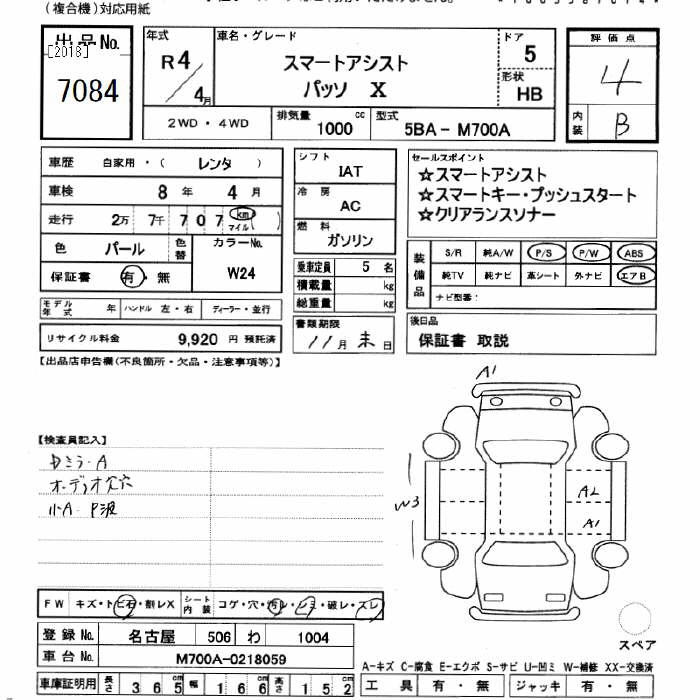 (複合機)対応用紙
出品No. 年式 車名・グレード ドア 評価点
[2018]
7084
R4/4月 スマートアシスト 5
パッソ X 形状 HB 4
2WD・4WD 排気量 1000 cc 型式 5BA－M700A 内装 B
車歴 自家用・( レンタ )
車検 8年 4月
走行 2万 7千 7 0 7 (km マイル)
色 パール 色替 カラーNo. W24
保証書 有・無
モデル年式 年 ハンドル 左・右 ディーラー・並行
リサイクル料金 9,920 円 預託済
シフト IAT
冷房 AC
燃料 ガソリン
乗車定員 5 名
積載量 kg
総重量 kg
書類期限
11月末日
セールスポイント
☆スマートアシスト
☆スマートキー・プッシュスタート
☆クリアランスソナー
装備品 S/R 純A/W P/S P/W ABS
純TV 純ナビ 革シート 外ナビ エアB
ナビ型番：
後日品
保証書 取説
【出品店申告欄(不良箇所・欠品・注意事項等)】
【検査員記入】
A1
W3
A2
A1
オーディオ穴
小A・P波
FW キズ・トビ石・割レX シート内装 コゲ・穴・汚レ・シミ・破レ・スレ
登録No. 名古屋 506 わ 1004
車台No. M700A-0218059
車庫証明用 長さ 365 幅 166 高さ 152
スペア
A－キズ C－腐食 E－エクボ S－サビ U－凹ミ W－補修 XX－交換済
工具 有・無 ジャッキ 有・無